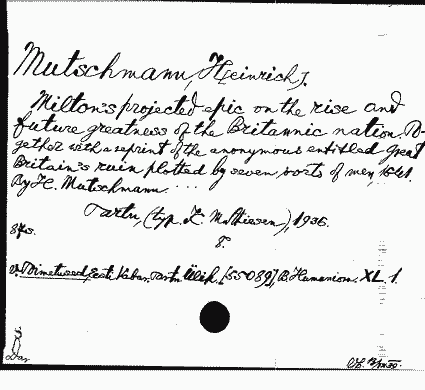 Mutschmann, Heinrich J.
Milton's projected epic on the rise and
future greatness of the Britannic nation. To-
gether with a reprint of the anonymous entitled Great
Britain's ruin plotted by seven sorts of men, 1641.
By H. Mutschmann. ...
Tartu, (typ. K. Mattiesen), 1936.
8°.
v. Toimetused, Eesti Vabar. Tartu Ülik. [55089], B. Humaniora. XL. 1.